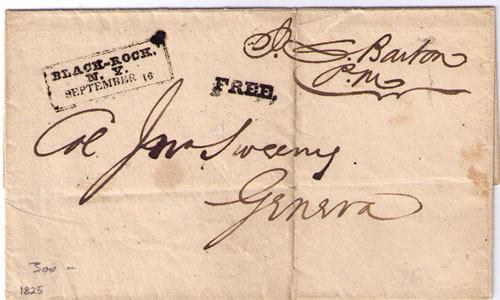 BLACK-ROCK.
N. Y.
SEPTEMBER 16
FREE,
J. G. Barton
P.M
Col Jno Sweeny
Geneva
300 -
1825